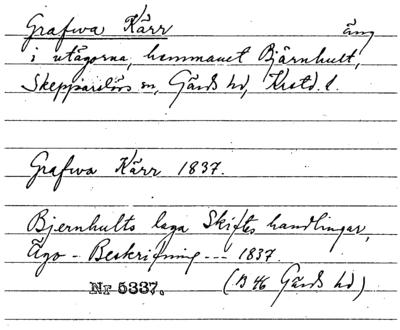 Grafwa Kärr äng
i utägorna, hemmanet Bjärnhult,
Skepparslövs sn, Gärds hd, Krstd. l.
Grafwa Kärr 1837.
Bjernhults laga Skiftes handlingar,
Ägo - Beskrifning --- 1837
Nr 5337. (B 46 Gärds hd)